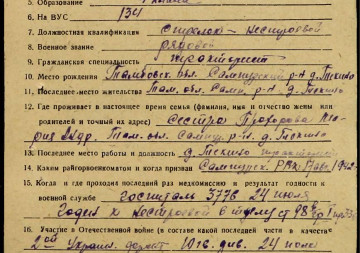 5. Образование
6. На ВУС 134
7. Должностная квалификация стрелок - нестроевой
8. Военное звание рядовой
9. Гражданская специальность тракторист
10. Место рождения Тамбовск. обл. Сампурский р-н д. Текино
11. Последнее место жительства Там. обл. Самп. р-н д. Текино
12. Где проживает в настоящее время семья (фамилия, имя и отчество жены или
родителей и точный их адрес) сестра
Там. обл. Сампур. р-н. д. Текино
13. Последнее место работы и должность д. Текино тракторист
14. Каким райгорвоенкоматом и когда призван Сампурск. РВК
15. Когда и где проходил последний раз медкомиссию и результат годности к
военной службе госпиталь 3776 24 июля
Годен к нестроевой
16. Участие в Отечественной войне (в составе какой последней части и в качестве
2ой Украин. фронт 10 гв. див. 24 июля